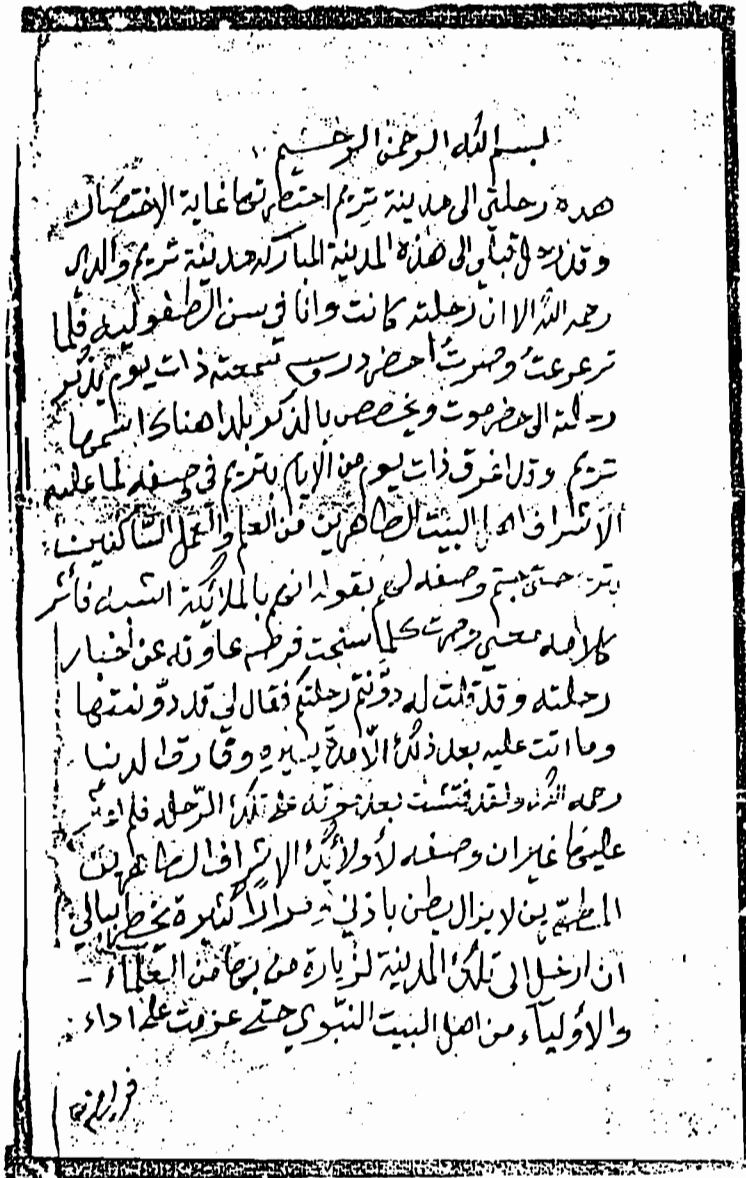 بسم الله الرحمن الرحيم
هذه رحلتي الى مدينة تريم اختصرتها غاية الاختصار
وقد رحل قبلي الى هذه المدينة المباركة مدينة تريم والدي
رحمه الله الا ان رحلته كانت وانا في سن الطفولية فلما
ترعرعت وصرت احضر دروسه سمعته ذات يوم يذكر
رحلته الى حضرموت ويخصص بالذكر بلدا هناك اسمها
تريم وقد اغرق ذات يوم من الايام بتريم في وصفه لما عليه
الاشراف اهل البيت الطاهرين من العلم والعمل الساكنين
بتريم حتى ختم وصفه لهم بقوله انهم بالملائكة اشبه فأثر
كلامه معي وصرت كلما سنحت فرصه عاودته عن اخبار
رحلته وقد قلت له دوّنتم رحلتكم فقال لي قد دوّنتها
وما اتت عليه بعد ذلك الّا مدة يسيره وفارق الدنيا
رحمه الله ولقد فتشت بعد موته على تلك الرّحله فلم اعثر
عليها غير ان وصفه لأولائك الاشراف الطاهرين
المطهرين لا يزال يطن باذني ومرارًا كثيرة يخطر ببالي
ان ارحل الى تلك المدينة لزيارة من بها من العلماء -
والأولياء من اهل البيت النبّوي حتى عزمت على اداء